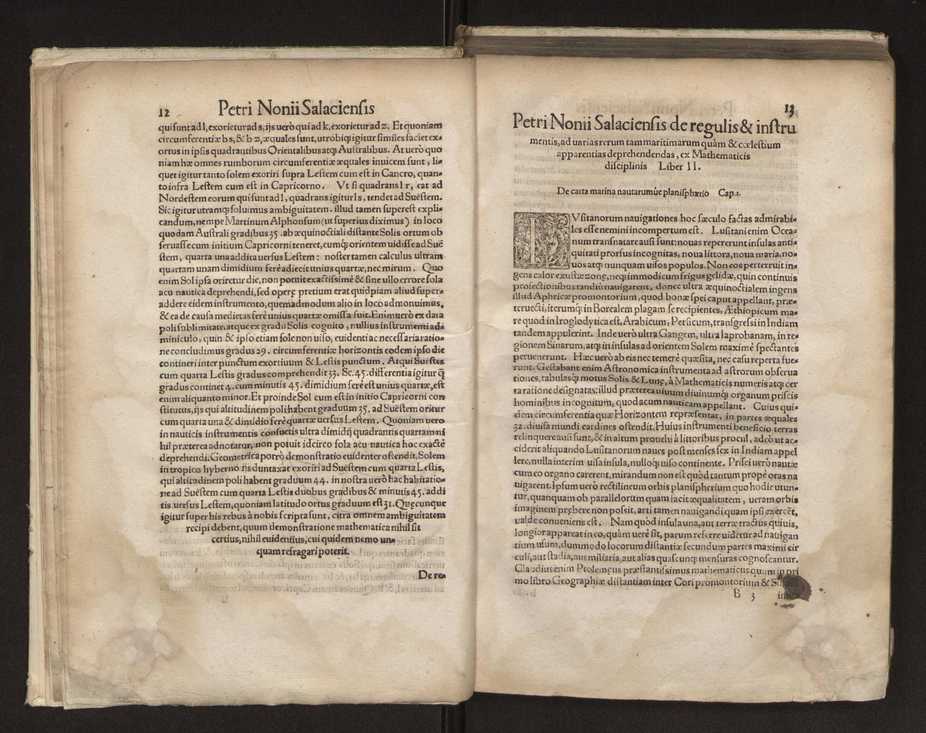 12 Petri Nonii Salaciensis
qui sunt ad l, exorietur ad s, ijs verò qui ad k, exorietur ad z. Et quoniam
circumferentiæ b s, & b z, æquales sunt, utrobiqꝫ igitur similes faciet ex⸗
ortus in ipsis quadrantibus Orientalibus atqꝫ Australibus. At uerò quo
niam hæ omnes rumborum circumferentiæ æquales inuicem sunt, li⸗
quet igitur tanto solem exoriri supra Lestem cum est in Cancro, quan⸗
to infra Lestem cum est in Capricorno. Vt si quadrans l r, eat ad
Nordestem eorum qui sunt ad l, quadrans igitur l s, tendet ad Suëstem.
Sic igitur utramqꝫ soluimus ambiguitatem. illud tamen superest expli⸗
candum, nempe Martinum Alphonsum (ut superius diximus) in loco
quodam Australi gradibus 35. ab æquinoctiali distante Solis ortum ob
seruasse cum initium Capricorni teneret, eumqꝫ orientem uidisse ad Suë
stem, quarta una addita versus Lestem: noster tamen calculus ultram
quartam unam dimidium ferè adiecit unius quartæ, nec mirum. Quo
enim Sol ipsa orietur die, non potuit exactissimè & sine ullo errore sola
acu nautica deprehendi, sed operę pretium erat quidpiam aliud super⸗
addere eidem instrumento, quemadmodum alio in loco admonuimus,
& ea de causa medietas ferè unius quartæ omissa fuit. Enimuerò ex data
poli sublimitate, atque ex gradu Solis cognito, nullius instrumenti ad⸗
miniculo, quin & ipso etiam sole non uiso, euidenti ac necessaria ratio⸗
ne concludimus gradus 29. circumferentiæ horizontis eodem ipso die
contineri inter punctum exortiuum & Lestis punctum. Atqui Suëstes
cum quarta Lestis gradus comprehendit 33. Sc. 45. differentia igitur ꝗ̃
gradus continet 4. cum minutis 45. dimidium ferè est unius quartæ, est
enim aliquanto minor. Et proinde Sol cum est in initio Capricorni con
stitutus, ijs qui altitudinem poli habent graduum 35. ad Suëstem oritur
cum quarta una & dimidio ferè quartæ versus Lestem. Quoniam vero
in nauticis instrumentis consuetis ultra dimidiũ quadrantis quartam ni
hil præterea adnotatur, non potuit idcirco sola acu nautica hoc exactè
deprehendi. Geometrica porrò demonstratio euidenter ostendit. Solem
in tropico hyberno ijs duntaxat exoriri ad Suëstem cum quarta Lestis,
qui altitudinem poli habent graduum 44. in nostra verò hac habitatio⸗
ne ad Suëstem cum quarta Lestis duobus gradibus & minutis 45. addi
tis versus Lestem, quoniam latitudo ortus graduum est 31. Quęcunque
igitur super his rebus à nobis scripta sunt, citra omnem ambiguitatem
recipi debent, quum demonstratione mathematica nihil sit
certius, nihil euidentius, cui quidem nemo un⸗
quam refragari poterit.
De re⸗
13
Petri Nonii Salaciensis de regulis & instru
mentis, ad varias rerum tam maritimarum quàm & cœlestium
apparentias deprehendendas, ex Mathematicis
disciplinis Liber II.
De carta marina nautarumue planisphærio Cap. 1.
LVsitanorum nauigationes hoc sæculo factas admirabi⸗
les esse nemini incompertum est. Lusitani enim Ocea⸗
num transnatare ausi sunt: nouas repererunt insulas anti⸗
quitati prorsus incognitas, noua littora, noua maria, no⸗
uos atqꝫ nunquam uisos populos. Non eos perterruit in⸗
gens calor exustæ zonę, neqꝫ immodicum frigus gelidæ, quin continuis
profectionibus tandiu nauigarent, donec ultra æquinoctialem ingens
illud Aphricæ promontorium, quod bonæ spei caput appellant, præ⸗
teruecti, iterumqꝫ in Borealem plagam se recipientes, Æthiopicum ma⸗
re quod in Troglodytica est, Arabicum, Persicum, transgressi in Indiam
tandem appulerint. Inde uerò ultra Gangem, ultra Taprobanam, in re⸗
gionem Sinarum, atqꝫ in insulas ad orientem Solem maximè spectantes
peruenerunt. Hæc uerò ab eis nec temerè quæsita, nec casu reperta fue⸗
runt. Gestabant enim Astronomica instrumenta ad astrorum obserua
tiones, tabulasqꝫ motus Solis & Lunę, à Mathematicis numeris atqꝫ cer
ta ratione designatas: illud præterea uiuum diuinumqꝫ organum priscis
hominibus incognitum, quod acum nauticam appellant. Cuius qui⸗
dem circumferentia quæ Horizontem repræsentat, in partes æquales
32. diuisa mundi cardines ostendit. Huius instrumenti beneficio terras
relinquere ausi sunt, & in altum prouehi à littoribus procul, adeò ut ac⸗
ciderit aliquando Lusitanorum naues post menses sex in Indiam appel
lere, nulla interim uisa insula, nulloqꝫ uiso continente. Prisci uerò nautæ
cum eo organo carerent, mirandum non est quòd tantum propè oras na
uigarent. Ipsum verò rectilineum orbis planispherium quo hodie utun⸗
tur, quanquam ob parallelorum quam iacit æqualitatem, ueram orbis
imaginem præbere non possit, arti tamen nauigandi quam ipsi exercẽt,
valde conueniens est. Nam quòd insula una, aut terræ tractus quiuis,
longior appareat in eo, quàm uerè sit, parum referre uidetur ad nauigan
tium usum, dummodo locorum distantiæ secundum partes maximi cir
culi, aut stadia, aut miliaria, aut alias quascunqꝫ mensuras cognoscantur.
Claudius enim Ptolemęus præstantissimus mathematicus quum in pri
mo libro Geographiæ distantiam inter Cori promontorium &
B 3